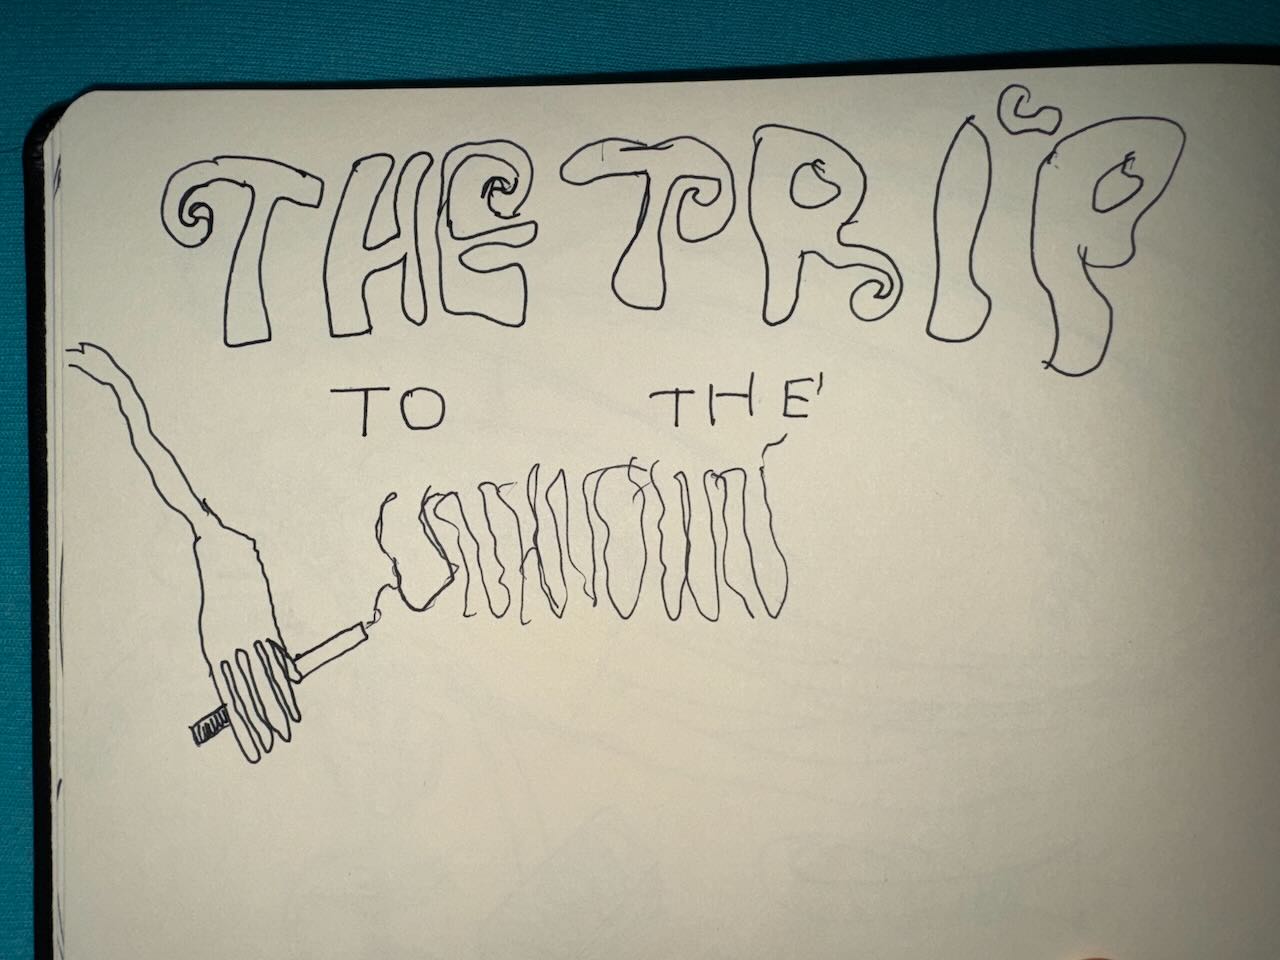 THE TRIP
TO THE
UNKNOWN